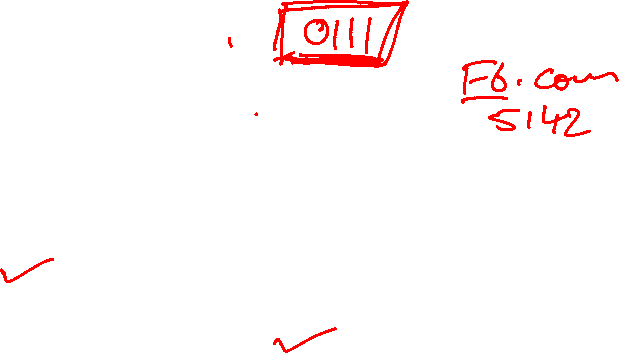 0111
F6.com
5142